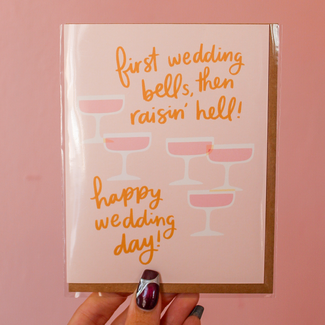 first wedding
bells, then
raisin' hell!
happy
wedding
day!